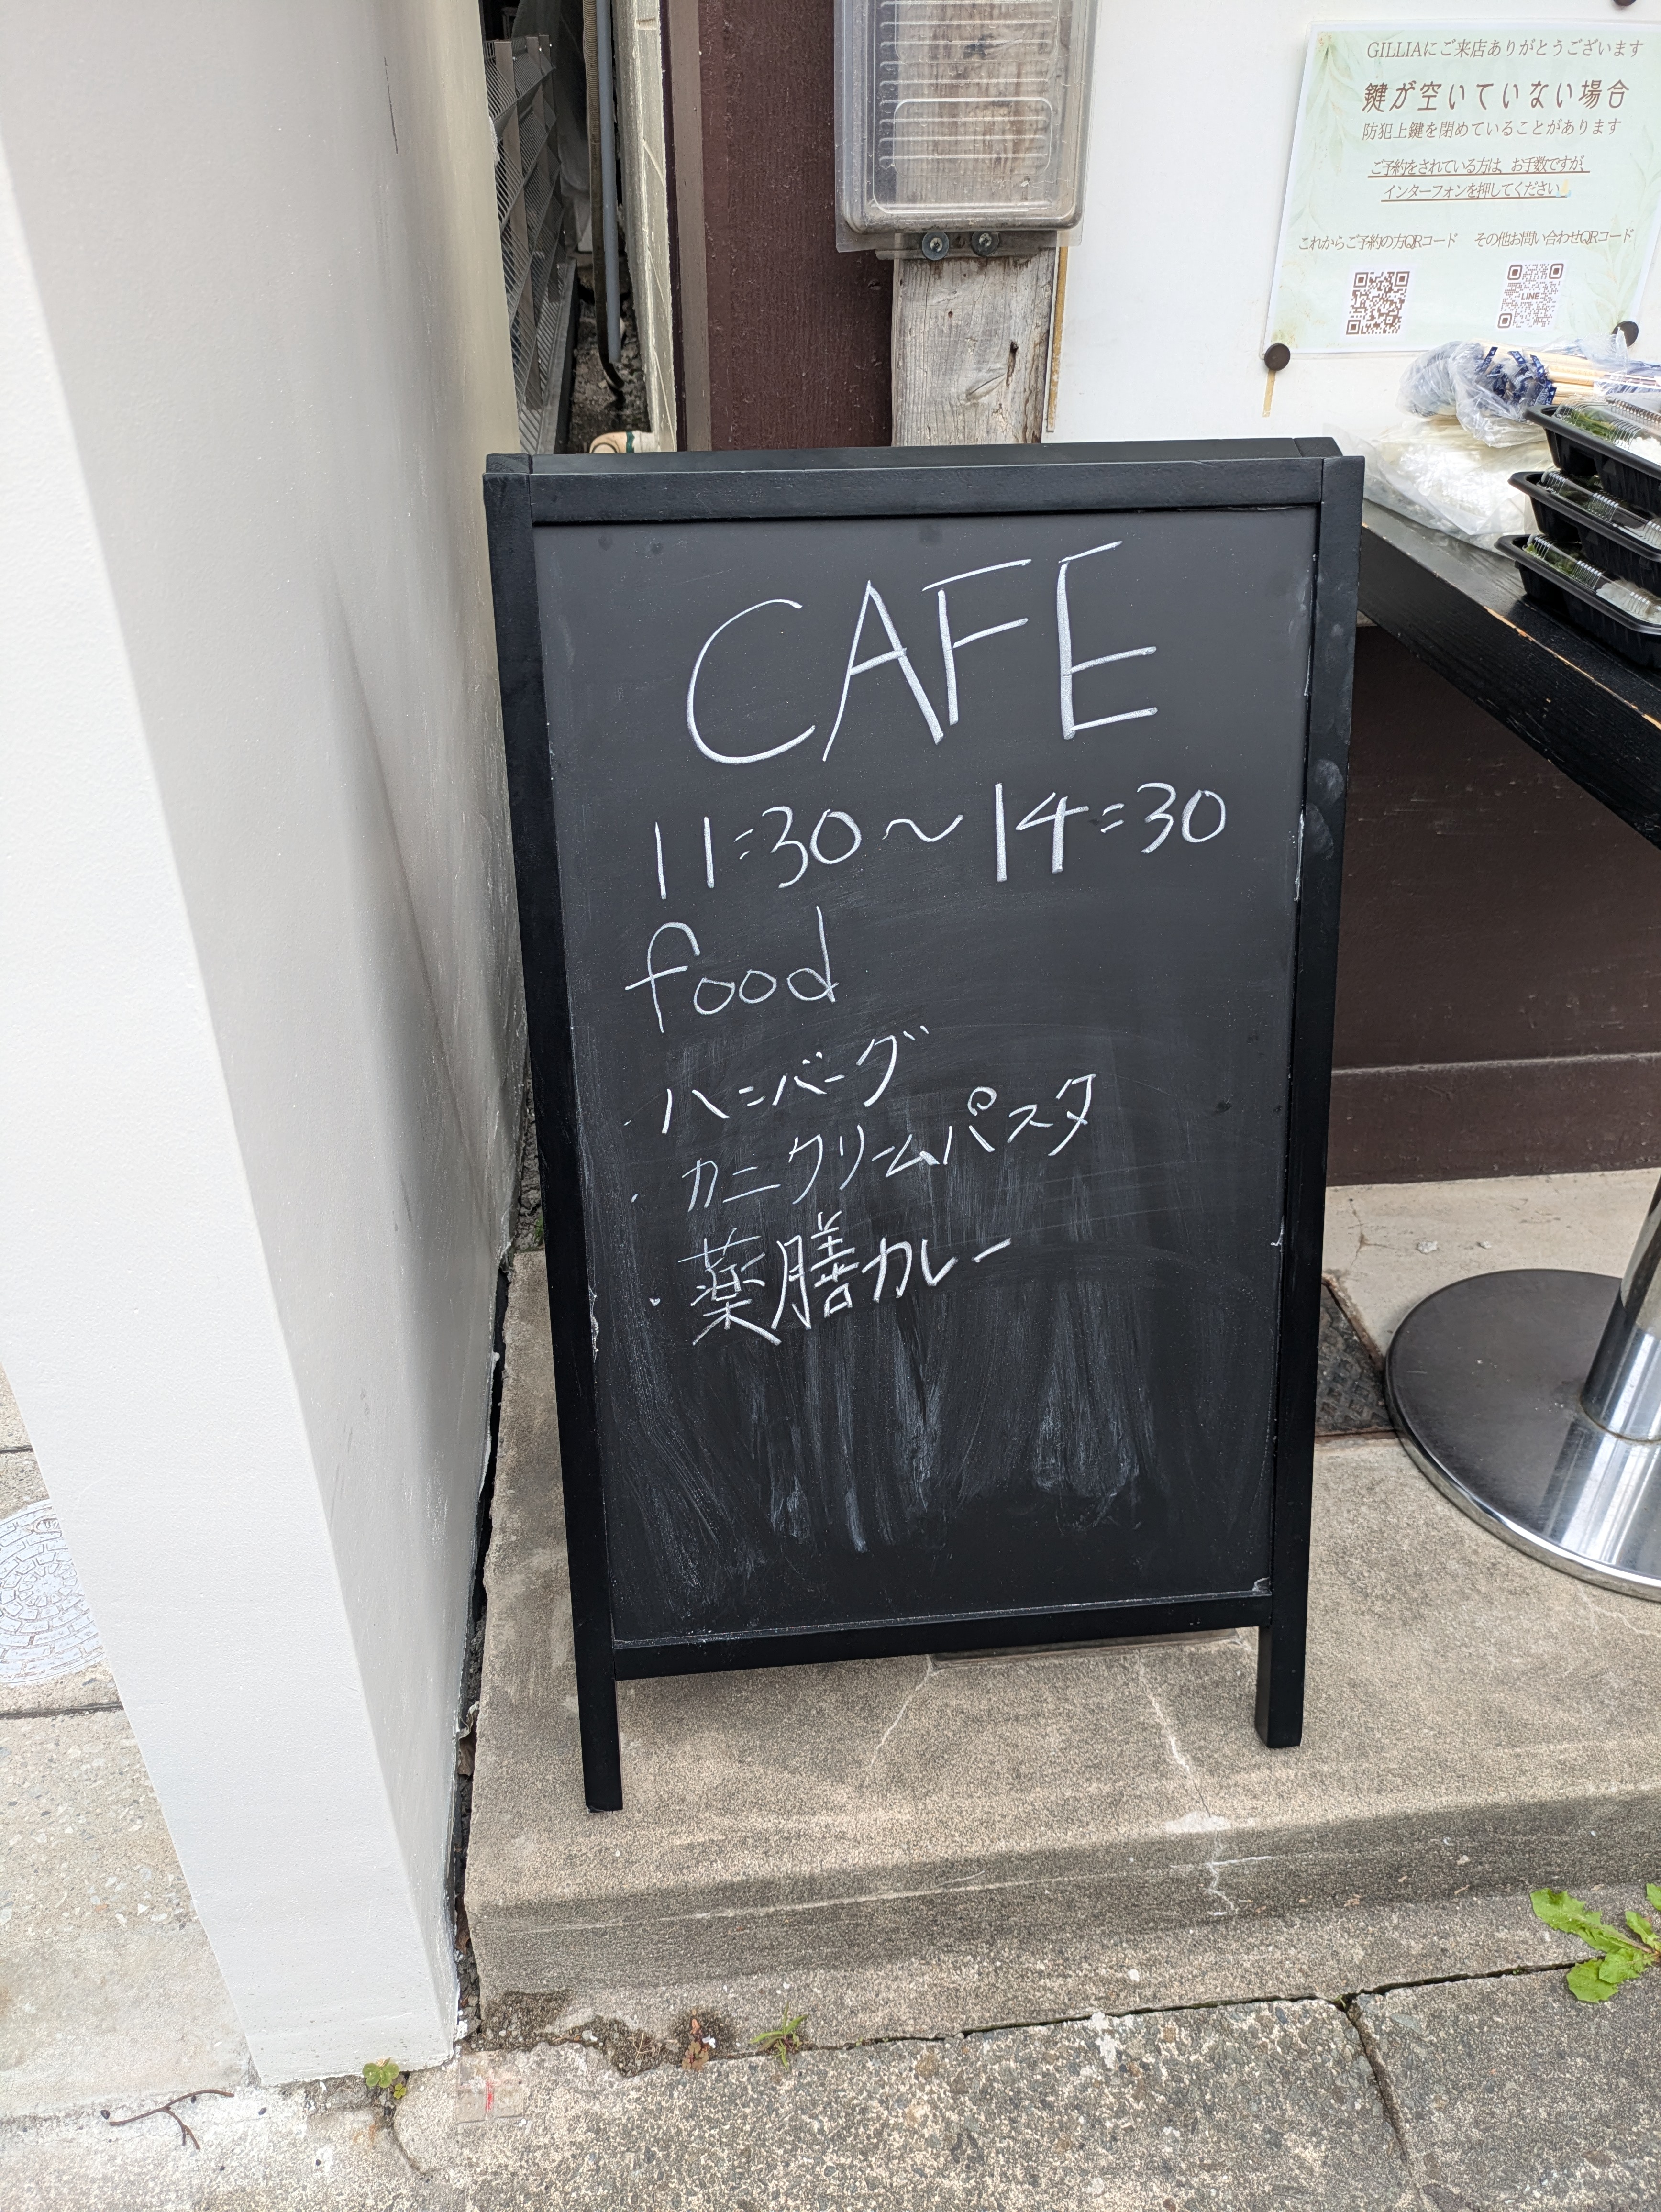 GILLIAにご来店ありがとうございます
鍵が空いていない場合
防犯上鍵を閉めていることがあります
ご予約をされている方は、お手数ですが、
インターフォンを押してください
これからご予約の方QRコード
その他お問い合わせQRコード
LINE
CAFE
11:30〜14:30
food
・ハンバーグ
・カニクリームパスタ
・薬膳カレー